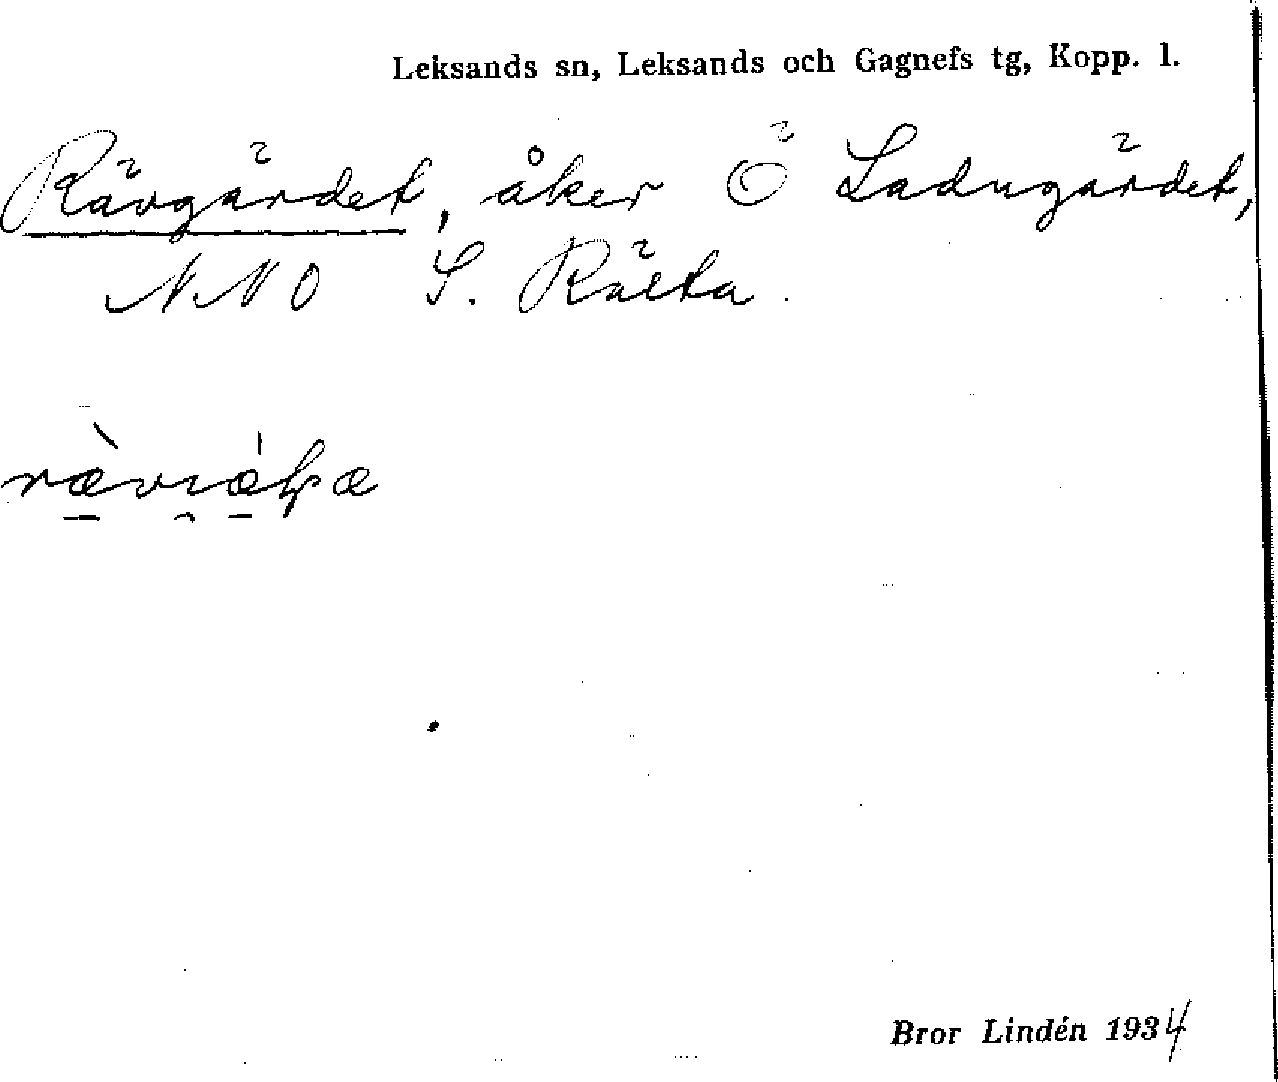 Leksands sn, Leksands och Gagnefs tg, Kopp. l.
Rävgärdet, åker Ö Ladugärdet,
NNO S. Rälta.
Bror Lindén 1934